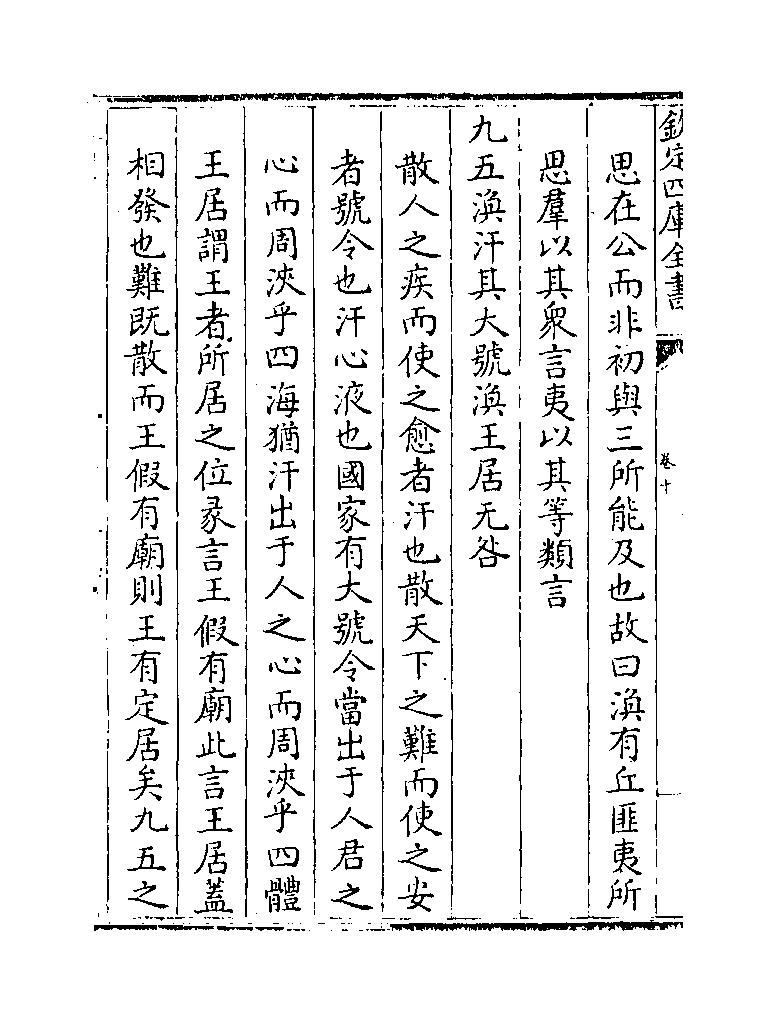 欽定四庫全書
卷十
思在公而非初與三所能及也故曰渙有丘匪夷所
思羣以其衆言夷以其等類言
九五渙汗其大號渙王居无咎
散人之疾而使之愈者汗也散天下之難而使之安
者號令也汗心液也國家有大號令當出于人君之
心而周浹乎四海猶汗出于人之心而周浹乎四體
王居謂王者所居之位彖言王假有廟此言王居蓋
相發也難既散而王假有廟則王有定居矣九五之